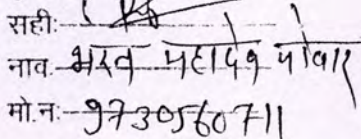 सही:-
नाव:- भरत महादेव पोवार
मो.न:- 9730560711